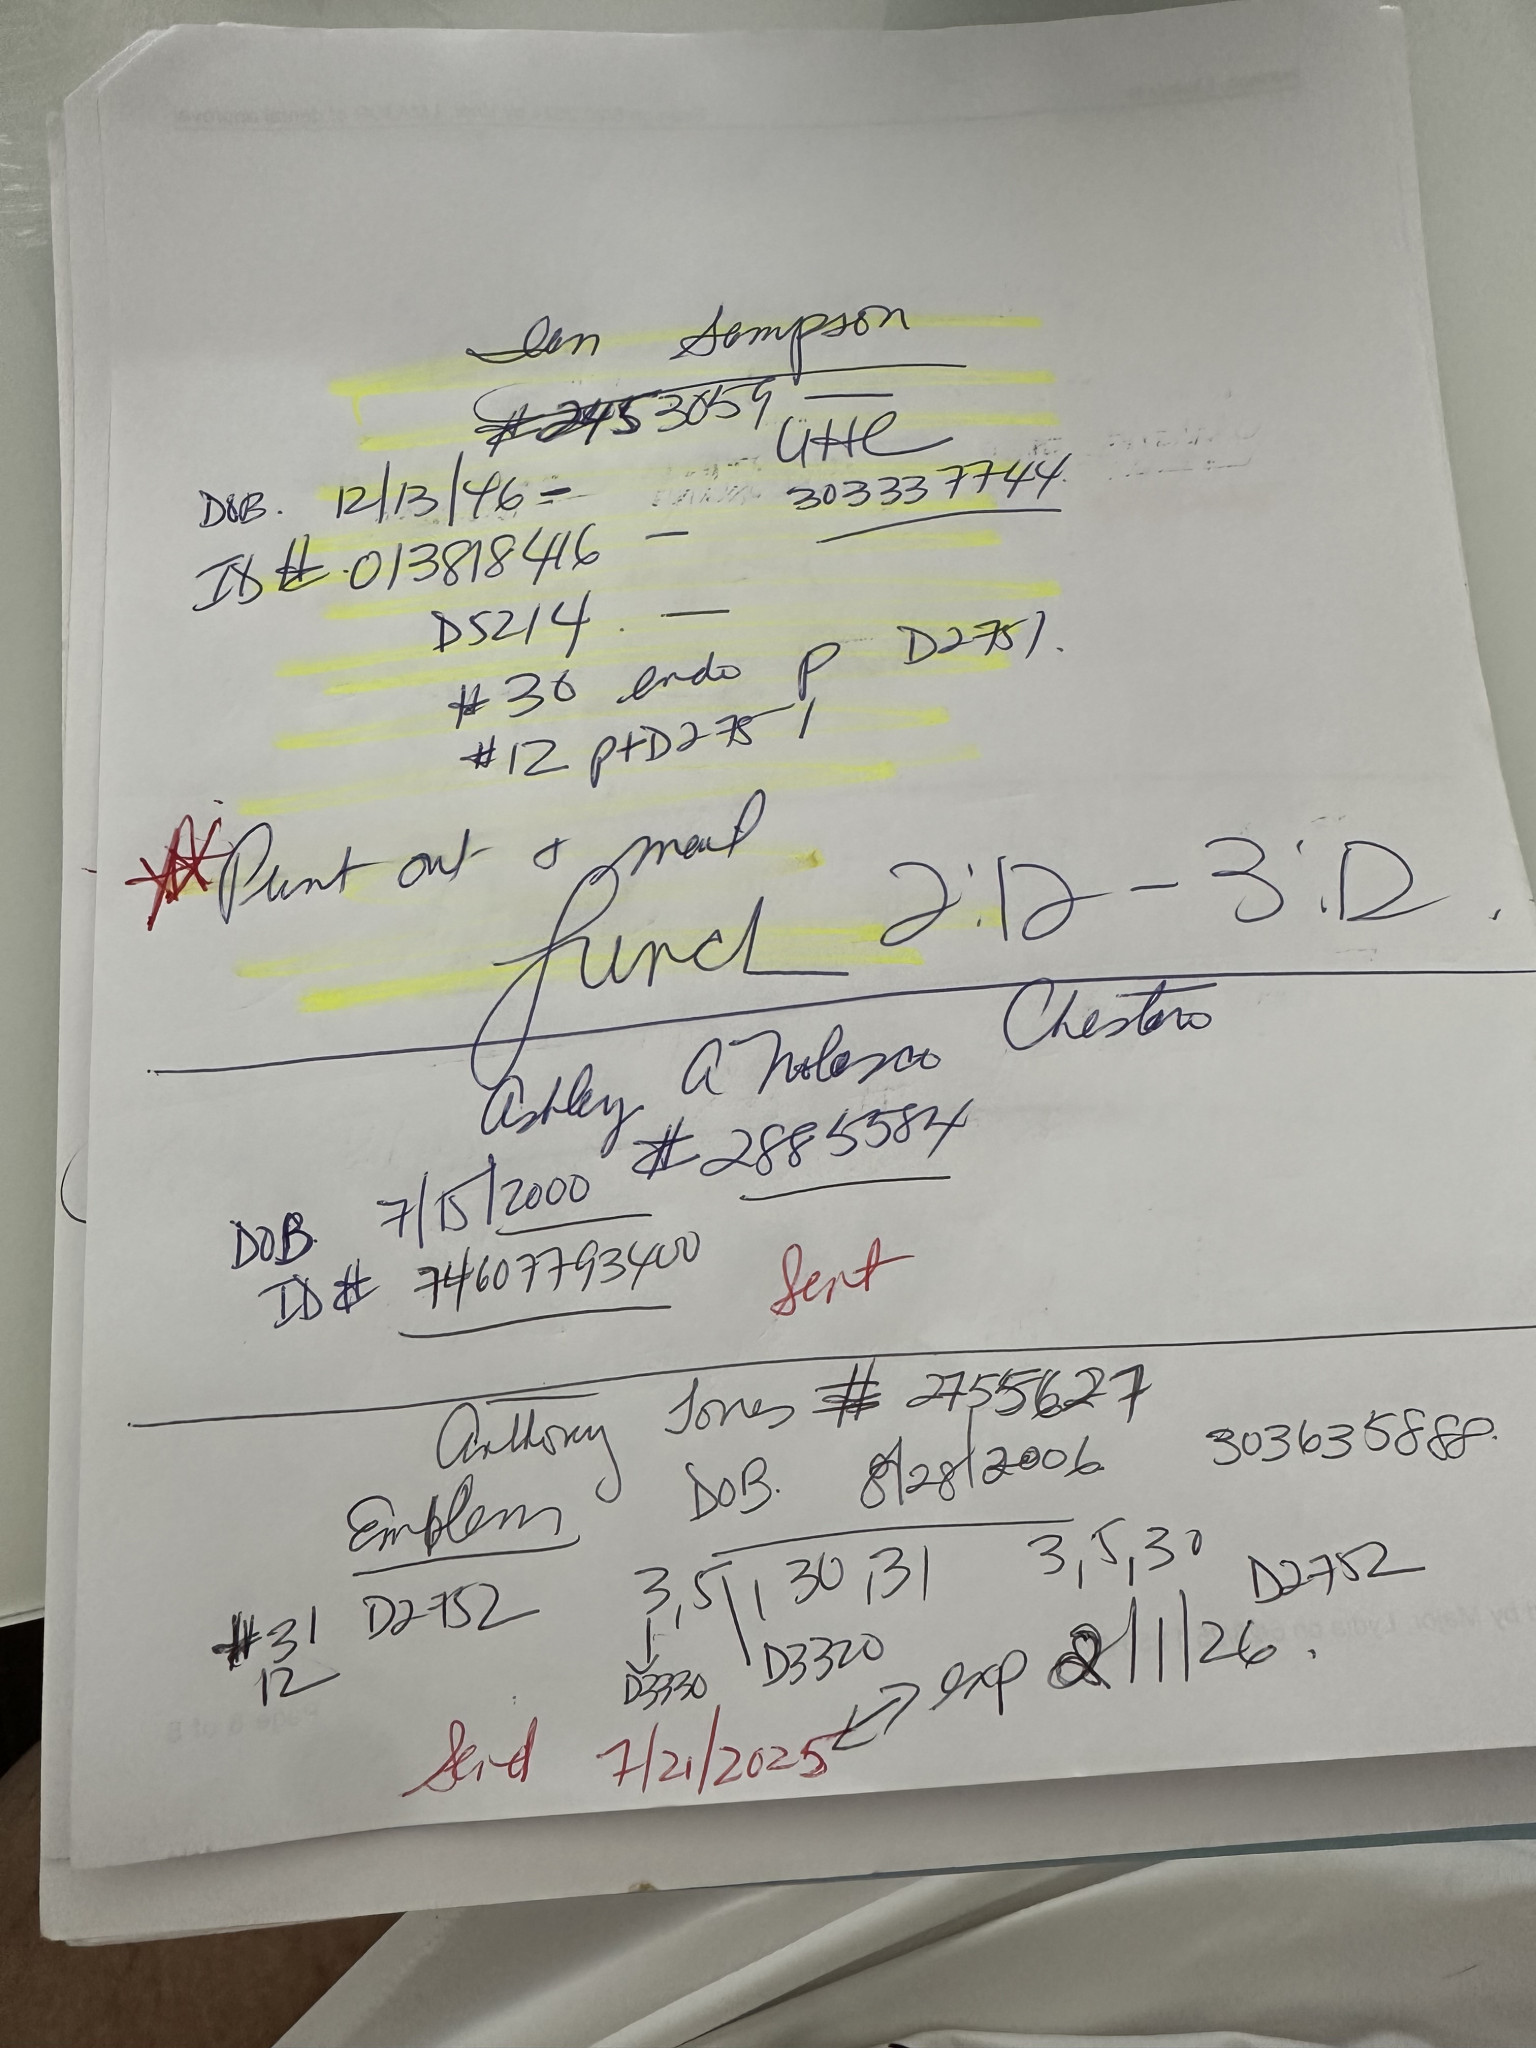 Ian Sampson
# 2453059 —
UHC
DOB. 12/13/46 - 3033377744.
ID # 013818416 —
D5214. —
#30 endo p D2751.
#12 p+D2751
Print out & mail
Lunch 2:12 - 3:12.
Ashley A Nolasco Chestaro
# 2885584
DOB. 7/15/2000
ID # 74607793400
Sent
Anthony Jones # 2755627
Emblem DOB. 8/28/2006 303635888.
#31 D2752 3,5, 30,31 3,5,30 D2752
12 D3330 D3320 exp 2/1/26.
Send 7/21/2025